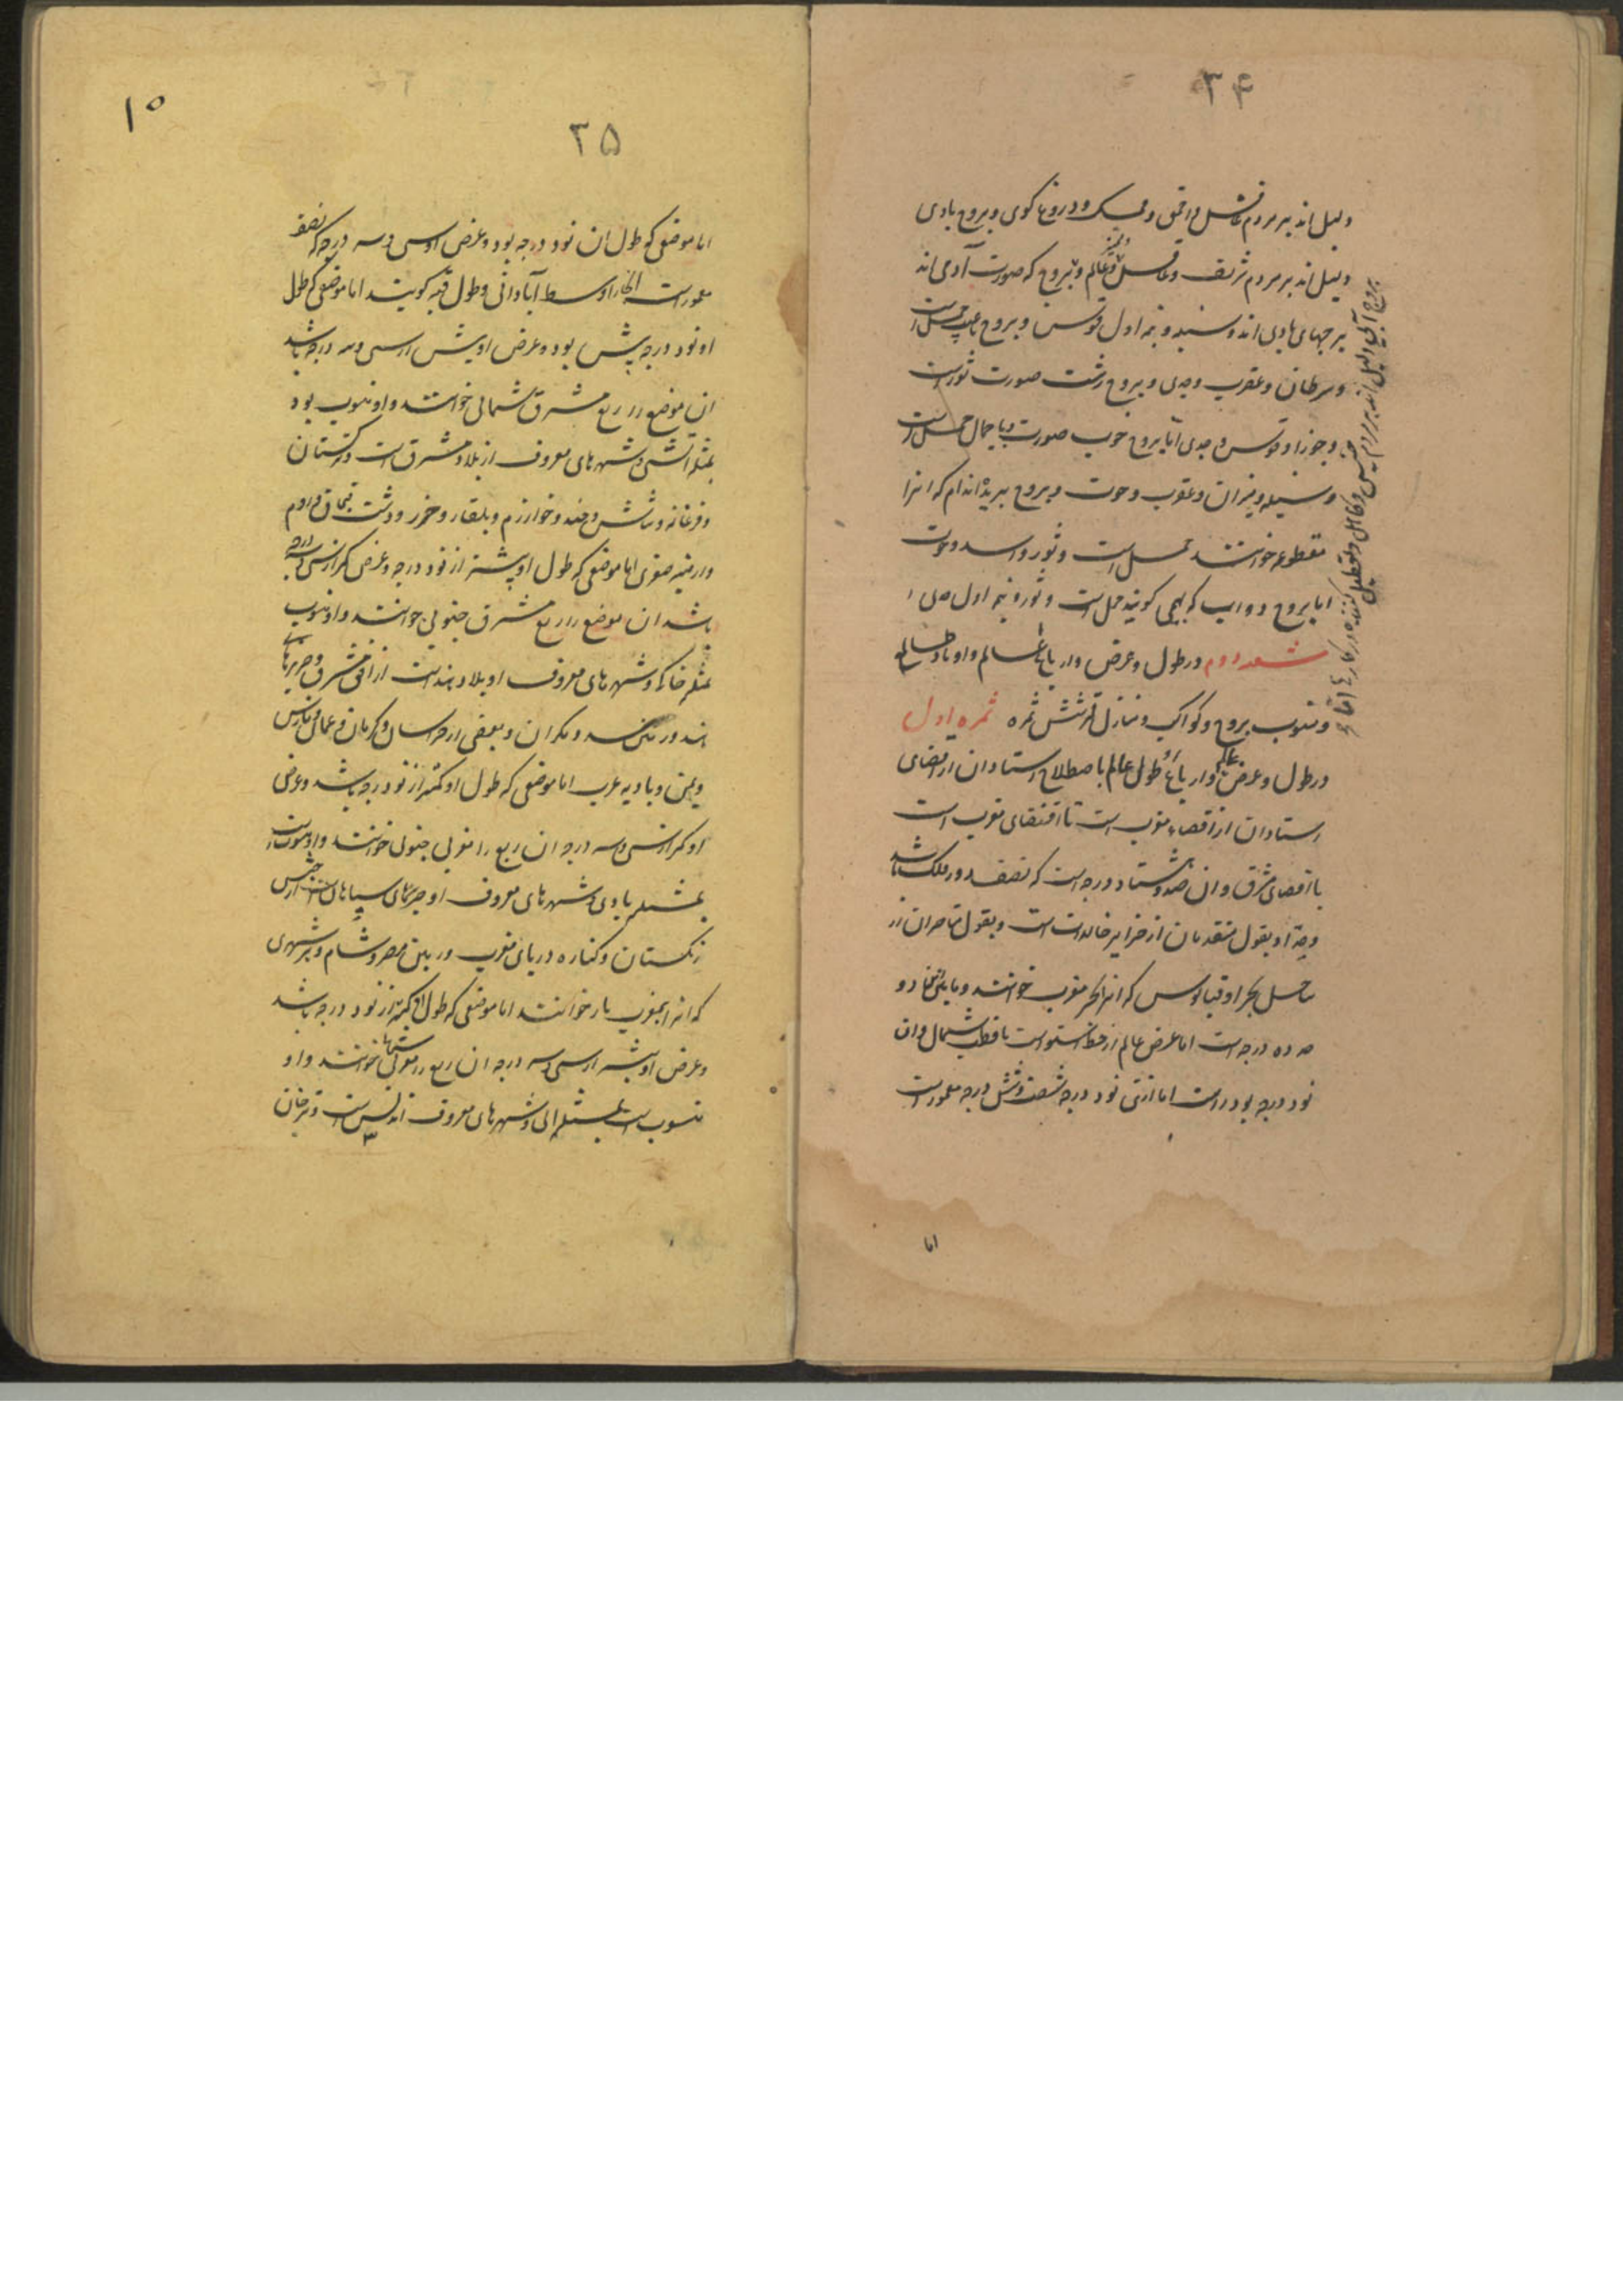 ۳۴
دلیل اند بر مردم فاسق و احمق و ممسک و دروغ گوی و بروج بادی
دلیل اند بر مردم شریف و عاقل و عالم و بروج که صورت آدمی اند
برجهای بادی اند و سنبله و نیمه اول قوس و بروج حمل است
و سرطان و عقرب و جدی و بروج زشت صورت ثور است
و جوزا و قوس و جدی اما بروج خوب صورت با جمال حمل است
و سنبله و میزان و عقرب و حوت و بروج بریده اندام که انرا
مقطوعه خوانند حمل است و ثور و اسد و حوت
اما بروج دواب که بهیمی کویند حمل است و ثور و نیمه اول جدی
شعبه دوم در طول و عرض و ارباع عالم و اوتاد طالع
و منسوب بروج و کواکب و منازل قمر شش ثمره ثمره اول
در طول و عرض عالم و ارباع او طول عالم باصطلاح استادان از اقصای
استادان از اقصاء مغرب است تا اقتضای مغرب است
با اقصای مشرق و ان صد و هشتاد درجه است که نصف دور فلک باشد
و مبدٔ او بقول متقدمان از جزایر خالدات است و بقول متاخران از
ساحل بحر اوقیانوس که انرا بحر مغرب خوانند و مابین انها دو
ده درجه است اما عرض عالم از خط استوا است تا قطب شمال و ان
نود درجه بود راست اما ازین نود درجه شصت و شش درجه معمور است
اما
بروج آبی دلیل اند بر مردم خسیس و کاهل و تعطیل کننده در کارها اما
۱۰
۳۵
اما موضعی که طول ان نود درجه بود و عرض او سی و سه درجه که نصف
معمور است انجا را وسط آبادانی و طول قبه کویند اما موضعی که طول
او نود درجه بیش بود و عرض او بیش از سی و سه درجه باشد
ان موضع را ربع مشرق شمالی خوانند و او منسوب بود
بمثلثه اتشی و شهرهای معروف از بلاد مشرق است و ترکستان
و فرغانه و شاش و خجند و خوارزم و بلغار و خزر و دشت قبچاق و روم
و ارمنیه صغری اما موضعی که طول او بیشتر از نود درجه و عرض کمتر از سی و سه درجه
باشد ان موضع را ربع مشرق جنوبی خوانند و او منسوب
بمثلثه خاکی و شهرهای معروف او بلاد هند است از اقصی مشرق و جزیرهای
هند و زمین سند و مکران و بعضی از خراسان و کرمان و عمان و فارس
و یمن و بادیه عرب اما موضعی که طول او کمتر از نود درجه باشد و عرض
او کمتر از سی و سه درجه ان ربع را مغربی جنوبی خوانند و او منسوب است
بمثلثه بادی و شهرهای معروف او جزیرهای سیاهان است از حبش
زنکستان و کناره دریای مغرب و زمین مصر و شام و هر شهری
که انرا بجنوب باز خوانند اما موضعی که طول او کمتر از نود درجه باشد
و عرض او بیشتر از سی و سه درجه ان ربع را مغربی شمالی خوانند و او
منسوب است بمثلثه آبی و شهرهای معروف اندلس است و ترخان